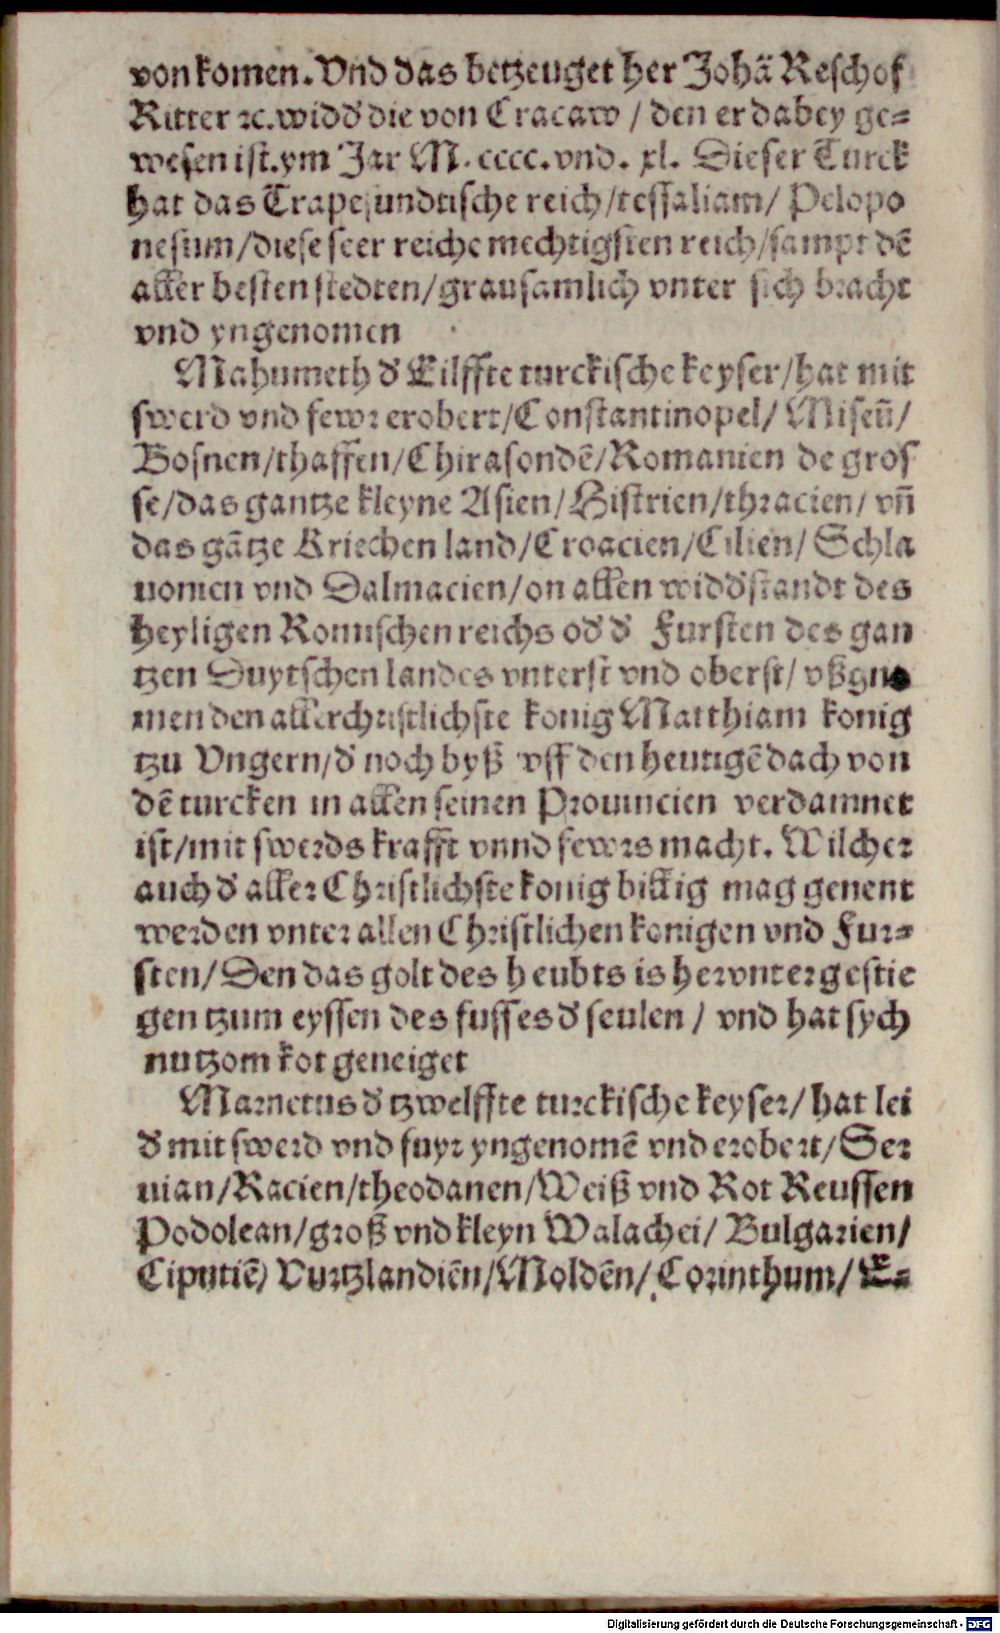 von komen. Vnd das betzeuget her Johã Reschof
Ritter ꝛc. widd̕ die von Cracaw / den er dabey ge⸗
wesen ist. ym Jar M. cccc. vnd. xl. Dieser Turck
hat das Trapesundtische reich/tessaliam/ Pelopo
nesum/diese seer reiche mechtigsten reich/sampt dẽ
aller besten stedten/grausamlich vnter sich bracht
vnd yngenomen
Mahumeth d̕ Eilffte turckische keyser/hat mit
swerd vnd fewr erobert/Constantinopel/ Miseñ/
Bosnen/thaffen/Chirasondẽ/Romanien de gros
se/das gantze kleyne Asien/Histrien/thracien/ vñ
das gãtze Kriechen land/Croacien/Cilien/ Schla
uonien vnd Dalmacien/on allen widd̕standt des
heyligen Romischen reichs od̕ d̕ Fursten des gan
tzen Duytschen landes vnterst vnd oberst/ vßgno
men den allerchristlichste konig Matthiam konig
tzu Vngern/d̕ noch byß vff den heutigẽ dach von
dẽ turcken in allen seinen Prouincien verdamnet
ist/mit swerds krafft vnnd fewrs macht. Wilcher
auch d̕ aller Christlichste konig billig mag genent
werden vnter allen Christlichen konigen vnd Fur⸗
sten/Den das golt des heubts is hervnter gestie
gen tzum eyssen des fusses d̕ seulen / vnd hat sych
nu tzom kot geneiget
Mametus d̕ tzwelffte turckische keyser/hat lei
d̕ mit swerd vnd fuyr yngenomẽ vnd erobert/Ser
uian/Racien/theodanen/Weiß vnd Rot Reussen
Podolean/groß vnd kleyn Walachei/ Bulgarien/
Ciputiẽ/ Vurtzlandiẽn/Moldẽn/ Corinthum/ E⸗
Digitalisierung gefördert durch die Deutsche Forschungsgemeinschaft - DFG